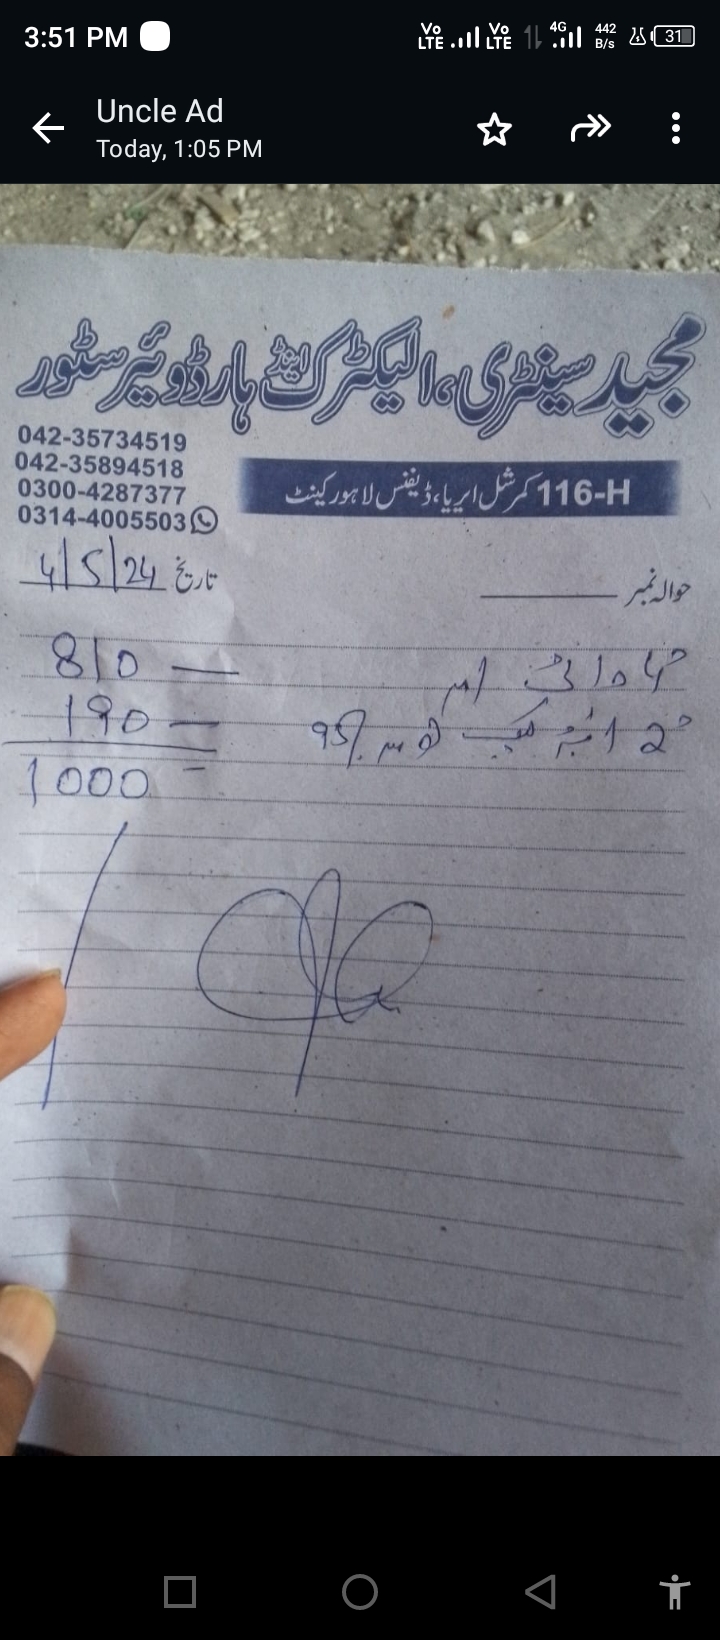 3:51 PM
Vo LTE Vo LTE 4G 442 B/s 31
Uncle Ad
Today, 1:05 PM
مجید سینٹری، الیکٹرک اینڈ ہارڈوئیر سٹور
042-35734519
042-35894518
0300-4287377
0314-4005503
116-H کمرشل ایریا، ڈیفنس لاہور کینٹ
حوالہ نمبر
تاریخ 4/5/24
810
2 95/ 190
1000